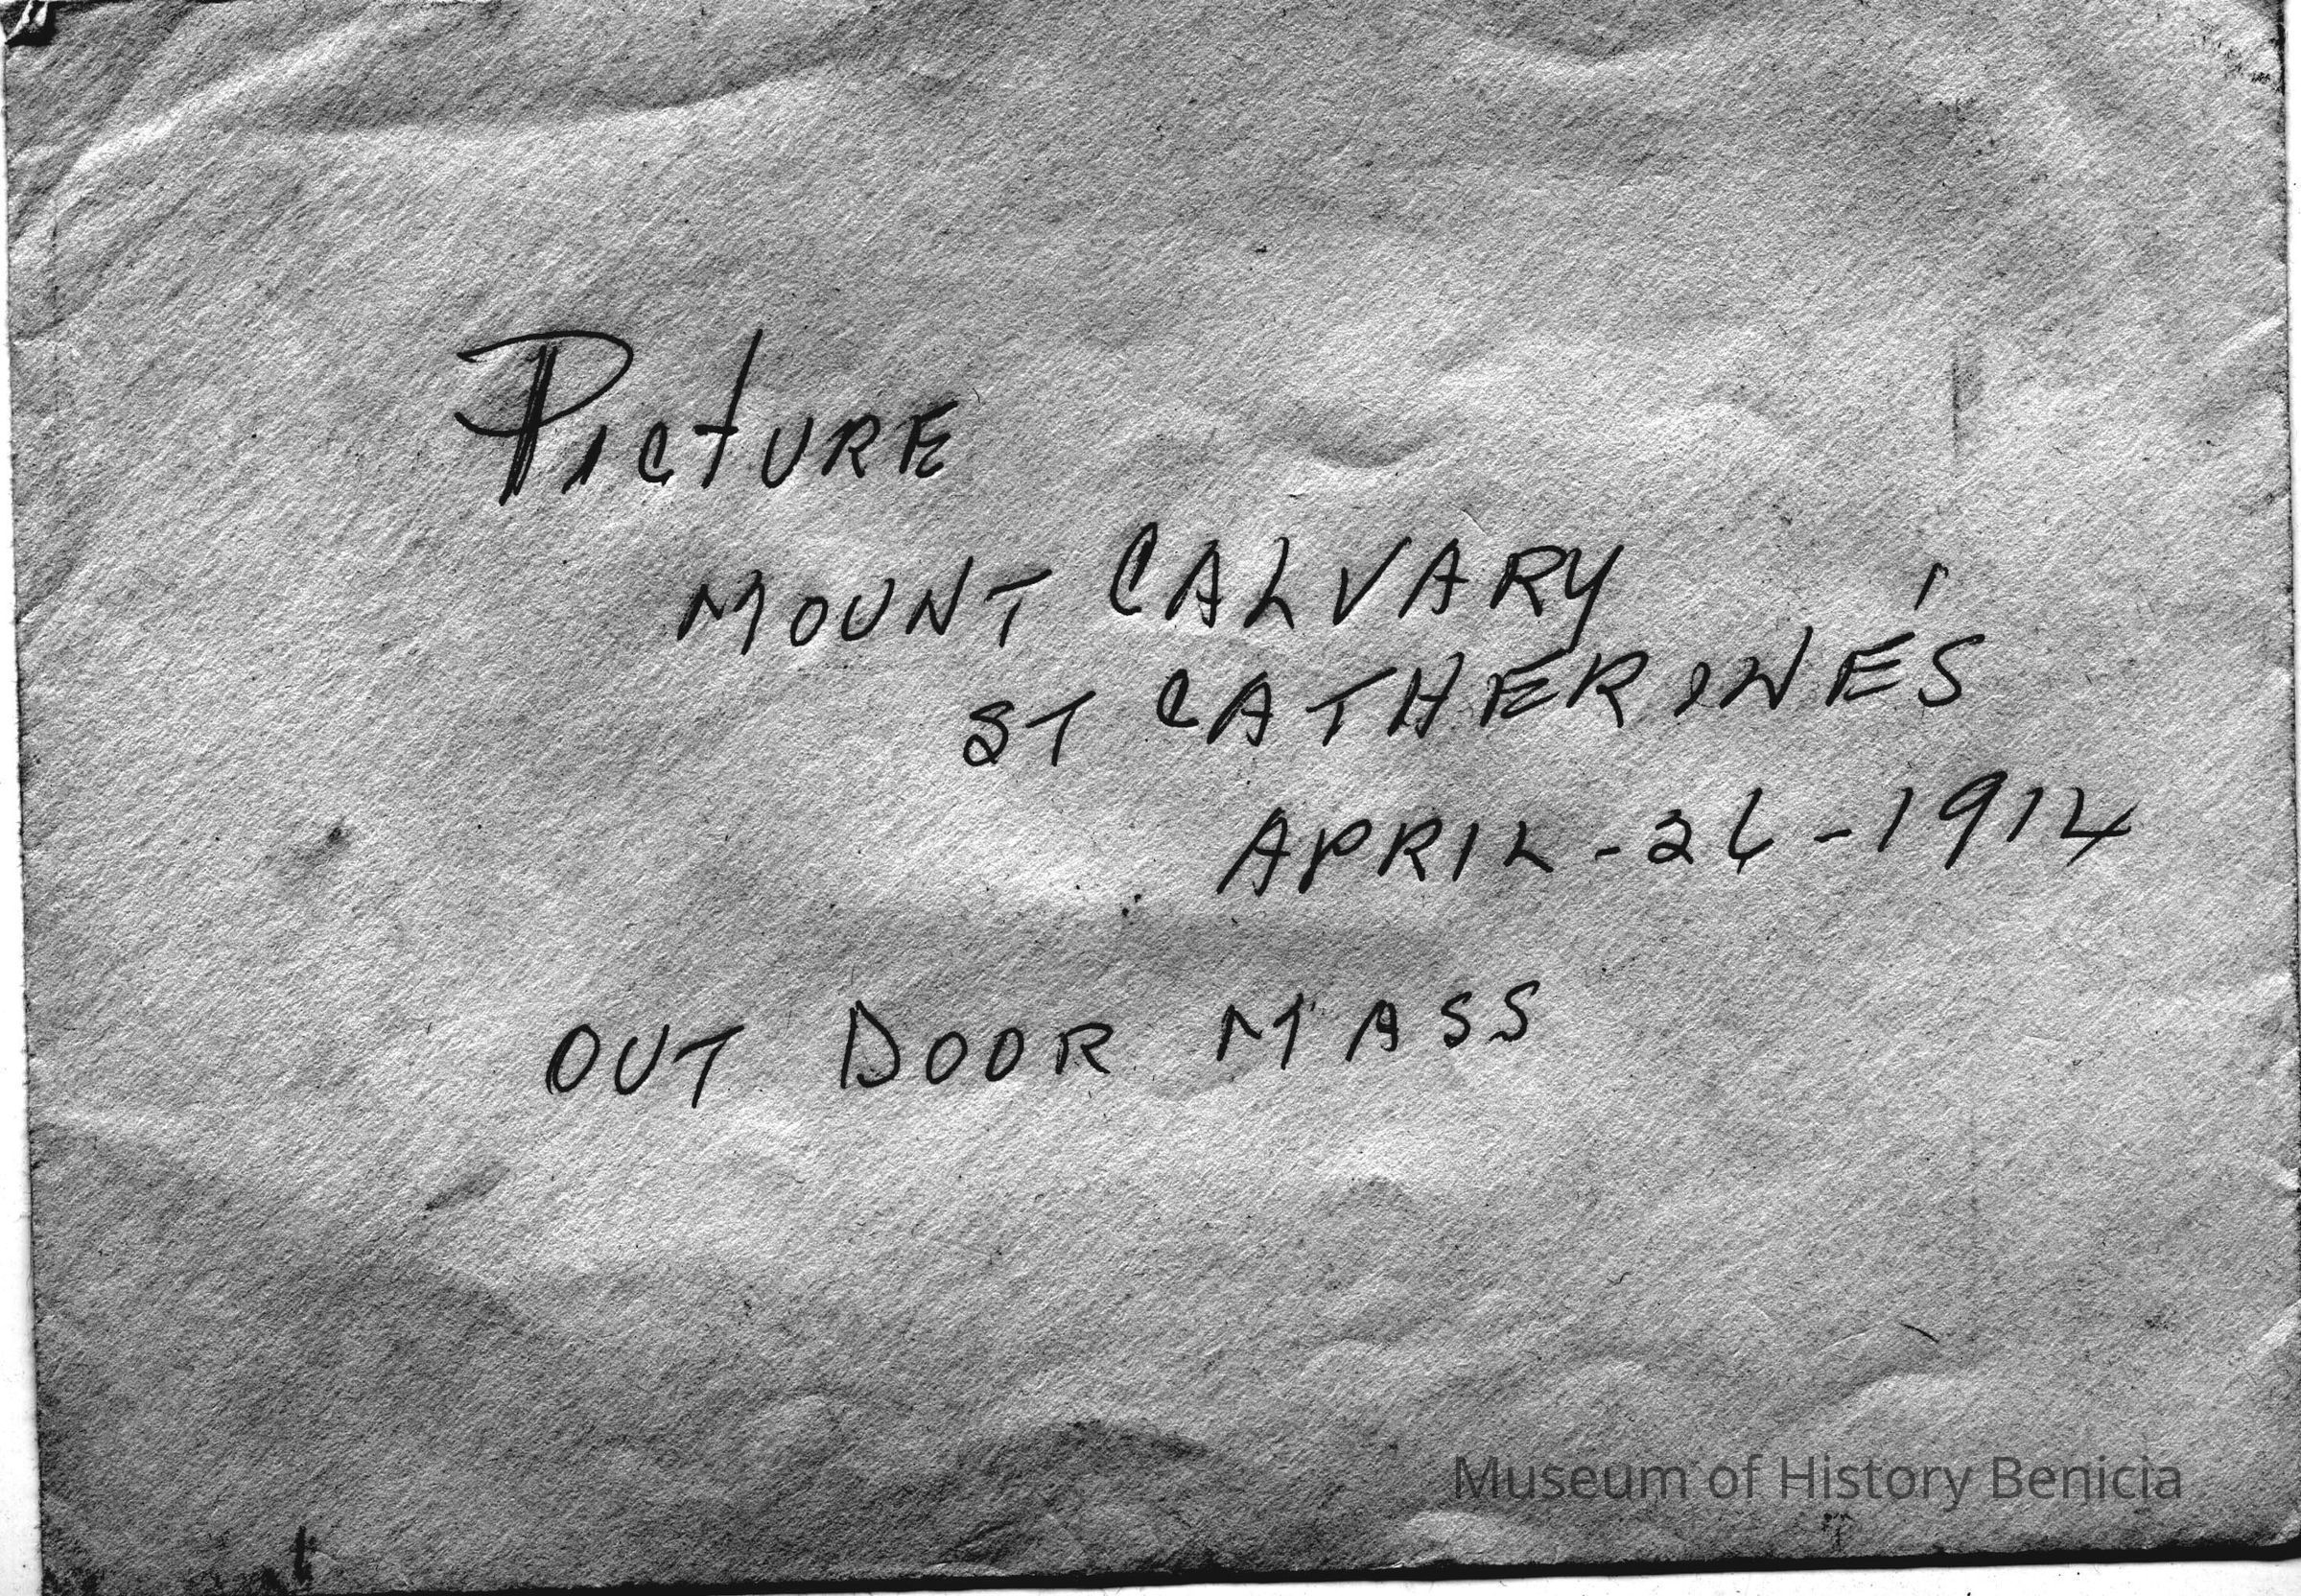 Picture
MOUNT CALVARY
ST CATHERINE'S
APRIL-26-1914
OUT DOOR MASS
Museum of History Benicia